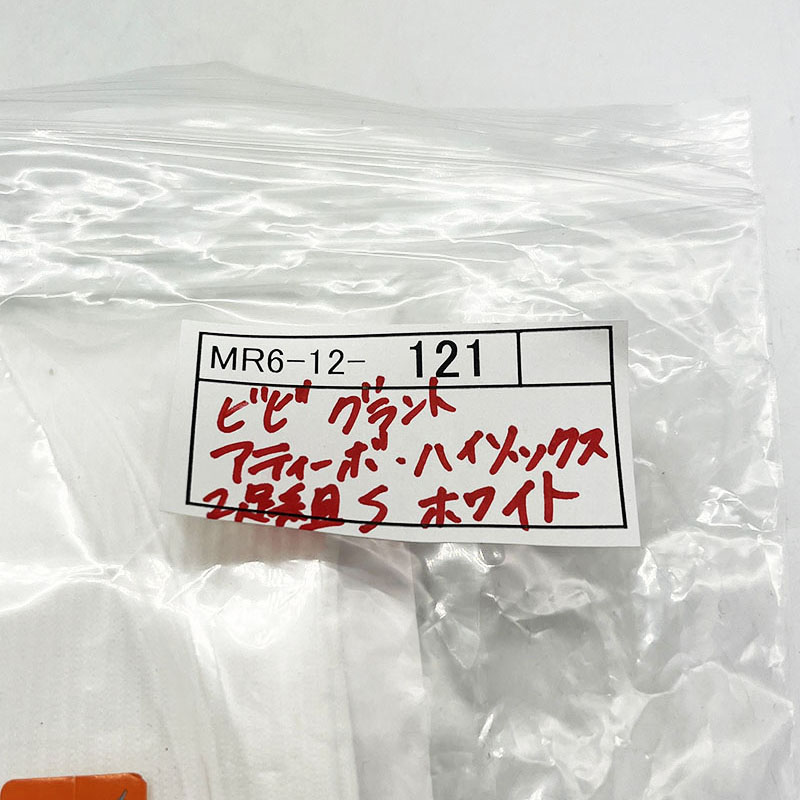 MR6-12- 121
ビビ グラント
アティーボ・ハイソックス
2足組 S ホワイト